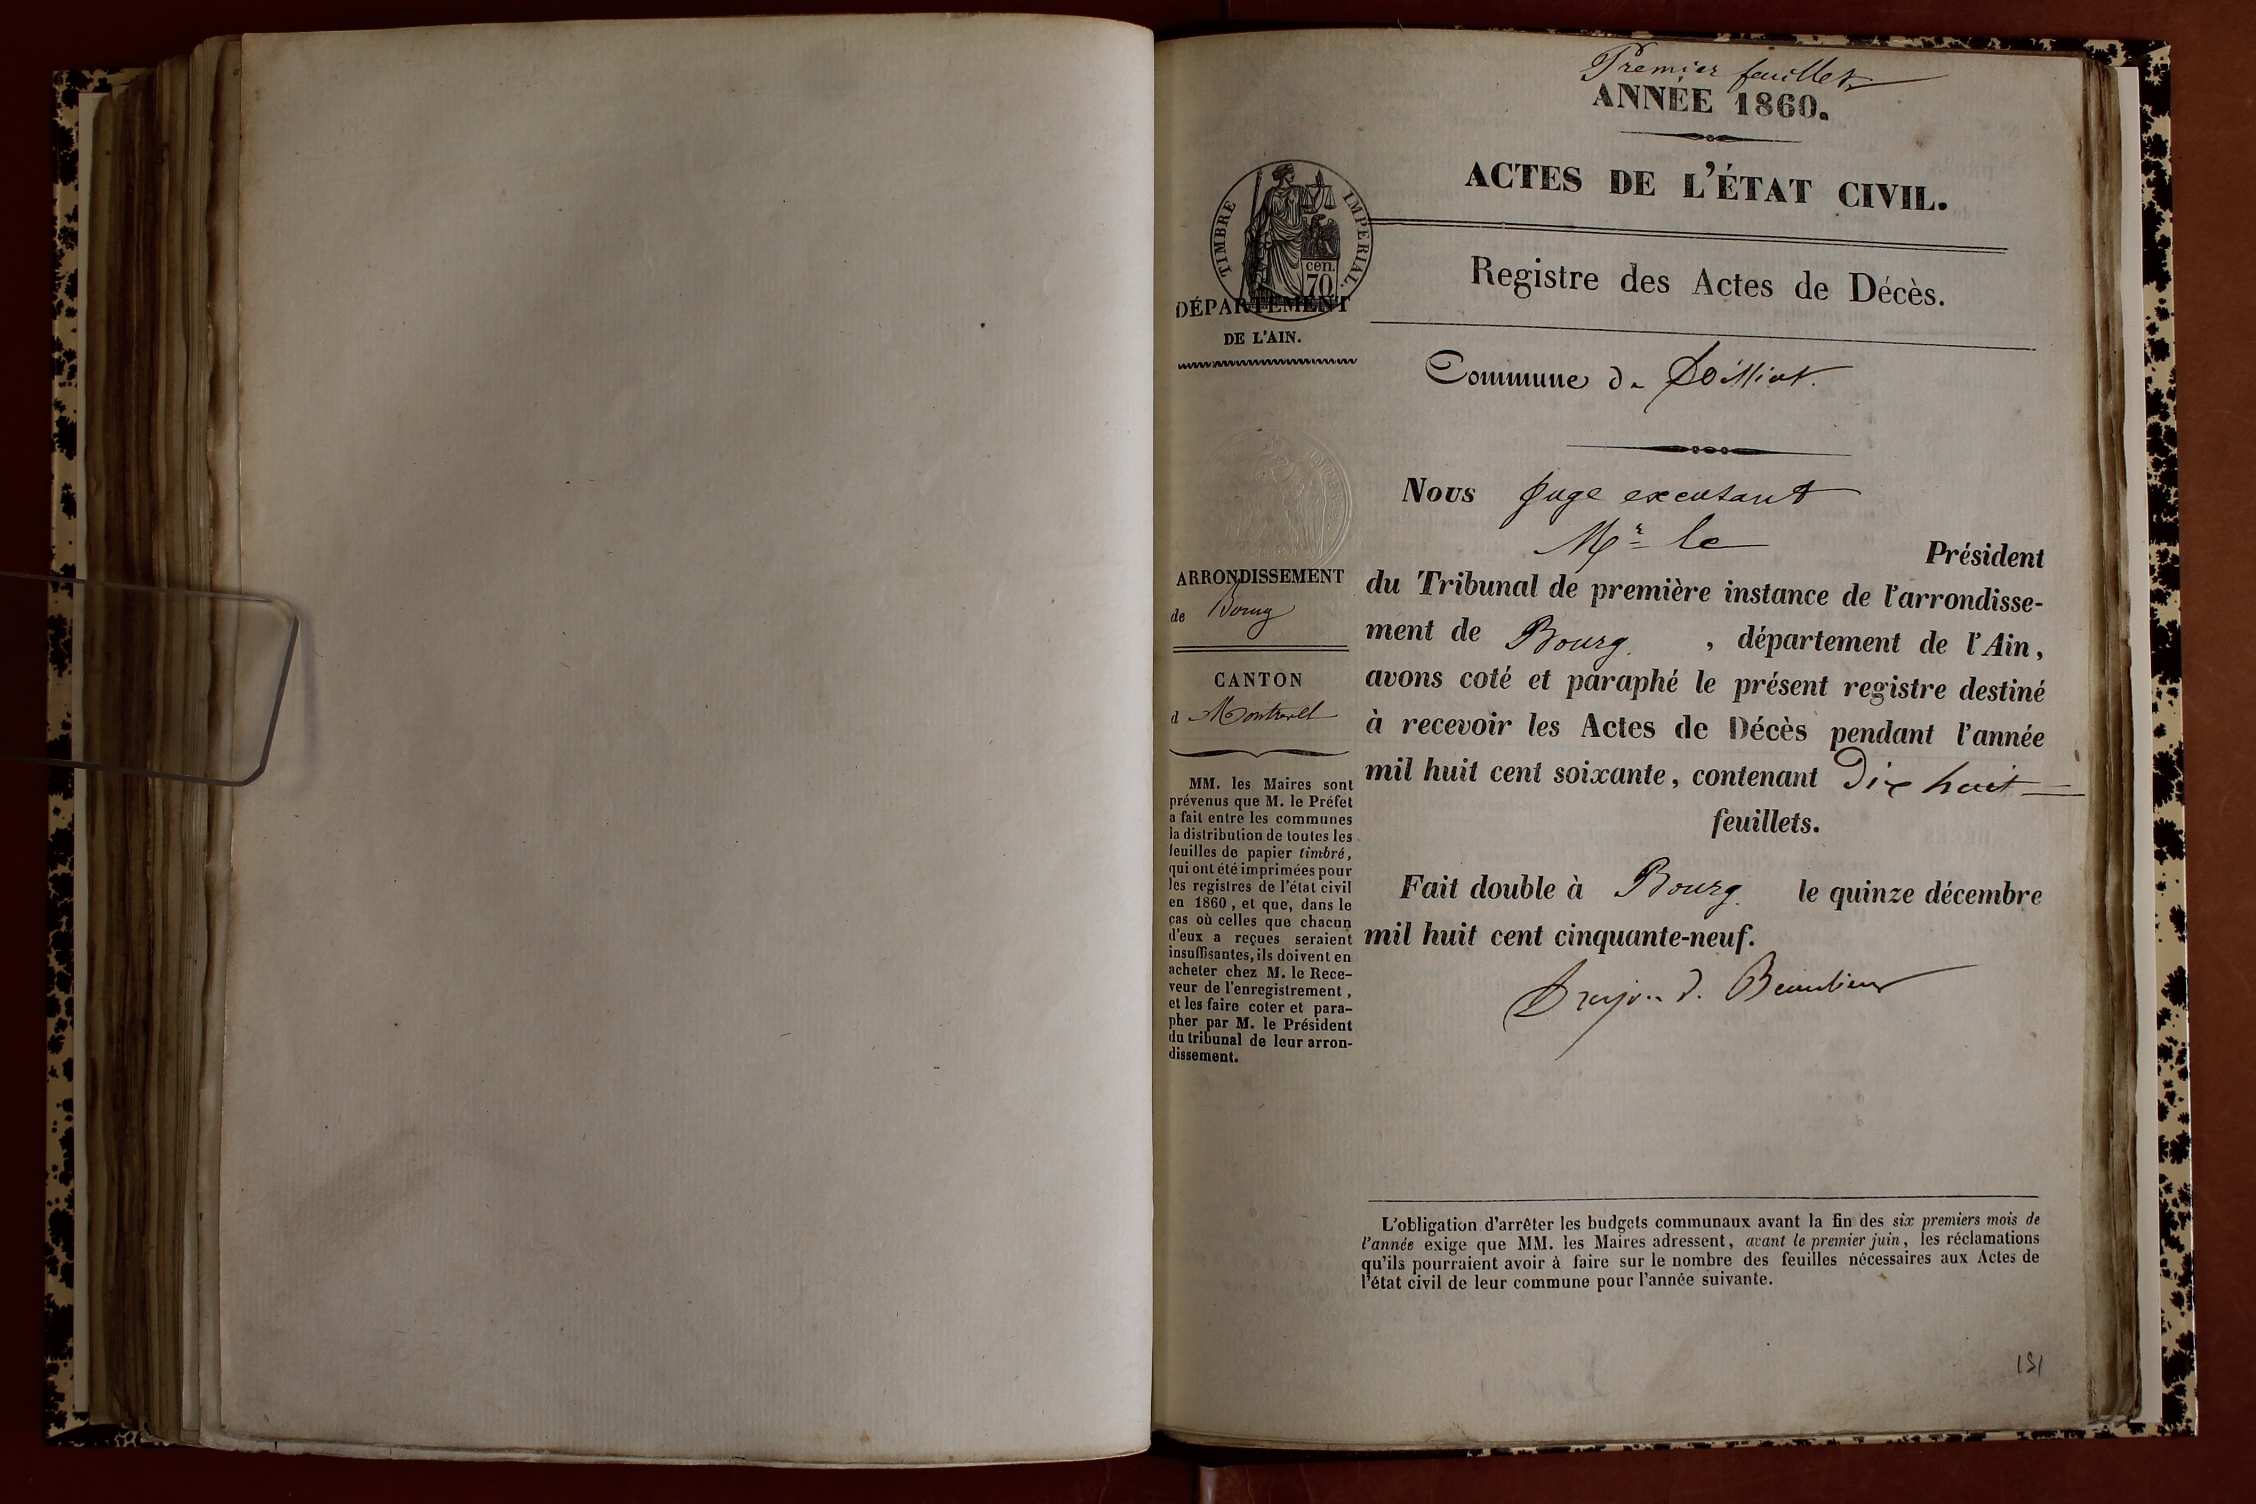 Premier feuillet
ANNÉE 1860.
ACTES DE L'ÉTAT CIVIL.
Registre des Actes de Décès.
TIMBRE IMPERIAL.
cen.
70
DÉPARTEMENT
DE L'AIN.
Commune de Polliat.
Nous Juge excusant
Mr le Président
du Tribunal de première instance de l'arrondisse-
ment de Bourg, département de l'Ain,
avons coté et paraphé le présent registre destiné
à recevoir les Actes de Décès pendant l'année
mil huit cent soixante, contenant Dix huit
feuillets.
Fait double à Bourg. le quinze décembre
mil huit cent cinquante-neuf.
d. Beaulieu
ARRONDISSEMENT
de Bourg
CANTON
d Montrevel
MM. les Maires sont
prévenus que M. le Préfet
a fait entre les communes
la distribution de toutes les
feuilles de papier timbré,
qui ont été imprimées pour
les registres de l'état civil
en 1860, et que, dans le
cas où celles que chacun
d'eux a reçues seraient
insuffisantes, ils doivent en
acheter chez M. le Rece-
veur de l'enregistrement,
et les faire coter et para-
pher par M. le Président
du tribunal de leur arron-
dissement.
L'obligation d'arrêter les budgets communaux avant la fin des six premiers mois de
l'année exige que MM. les Maires adressent, avant le premier juin, les réclamations
qu'ils pourraient avoir à faire sur le nombre des feuilles nécessaires aux Actes de
l'état civil de leur commune pour l'année suivante.
151